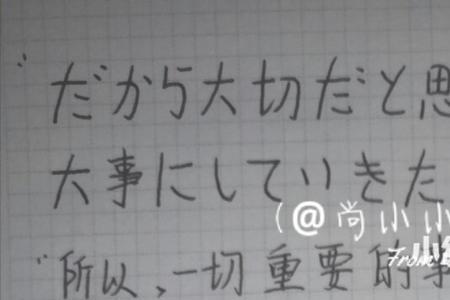 "だから大切だと思
大事にしていきた
(@尚小小
From 小红
"所以、一切重要的事